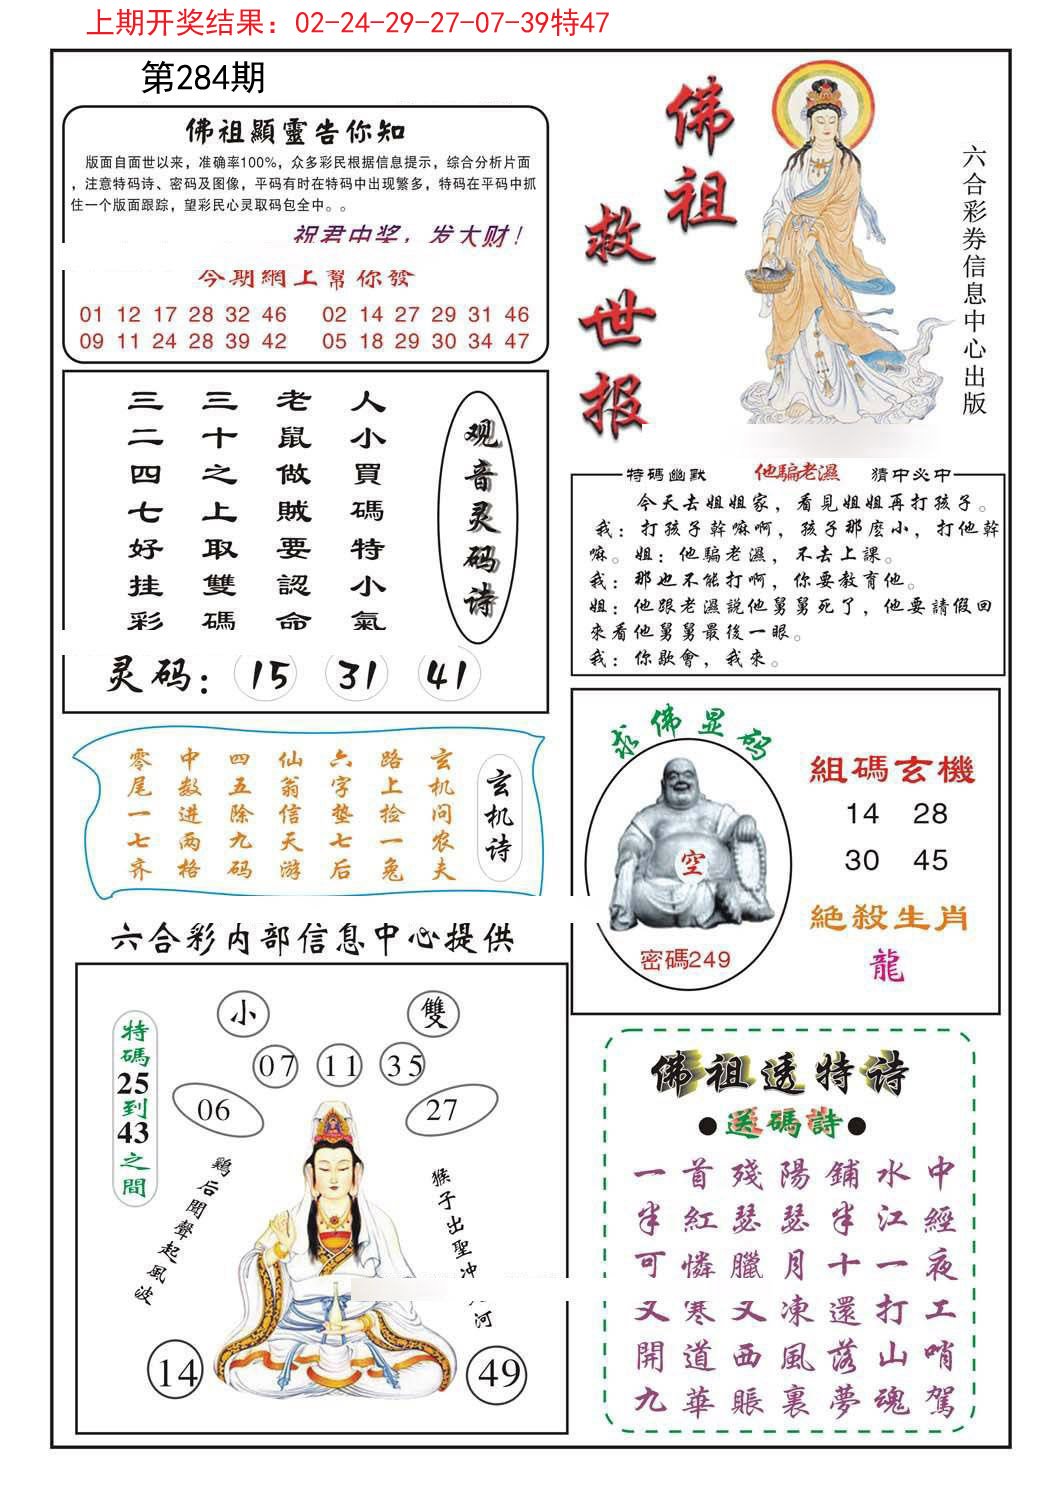 上期开奖结果：02-24-29-27-07-39特47
第284期
佛祖顯靈告你知
版面自面世以来，准确率100%，众多彩民根据信息提示，综合分析片面
，注意特码诗、密码及图像，平码有时在特码中出现繁多，特码在平码中抓
住一个版面跟踪，望彩民心灵取码包全中。。
祝君中奖，发大财！
今期網上幫你發
01 12 17 28 32 46 02 14 27 29 31 46
09 11 24 28 39 42 05 18 29 30 34 47
佛祖
救世报
六合彩券信息中心出版
观音灵码诗
人小買碼特小氣
老鼠做賊要認命
三十之上取雙碼
三二四七好挂彩
灵码：15 31 41
特碼幽默 他騙老濕 猜中必中
今天去姐姐家，看見姐姐再打孩子。
我：打孩子幹嘛啊，孩子那麽小，打他幹
嘛。姐：他騙老濕，不去上課。
我：那也不能打啊，你要教育他。
姐：他跟老濕説他舅舅死了，他要請假回
來看他舅舅最後一眼。
我：你歇會，我來。
玄机诗
玄机问农夫
路上捡一兔
六字垫七后
仙翁信天游
四五除九码
中数进两格
零尾一七齐
求佛显码
空
密碼249
組碼玄機
14 28
30 45
絶殺生肖
龍
六合彩内部信息中心提供
特碼25到43之間
小 雙
07 11 35
06 27
鷄后聞聲起風波
猴子出聖冲 河
14 49
佛祖透特诗
●送碼詩●
中經夜工哨駕
水江一打山魂
鋪半十還落夢
陽瑟月凍風裏
殘瑟臘又西賬
首紅憐寒道華
一半可又開九